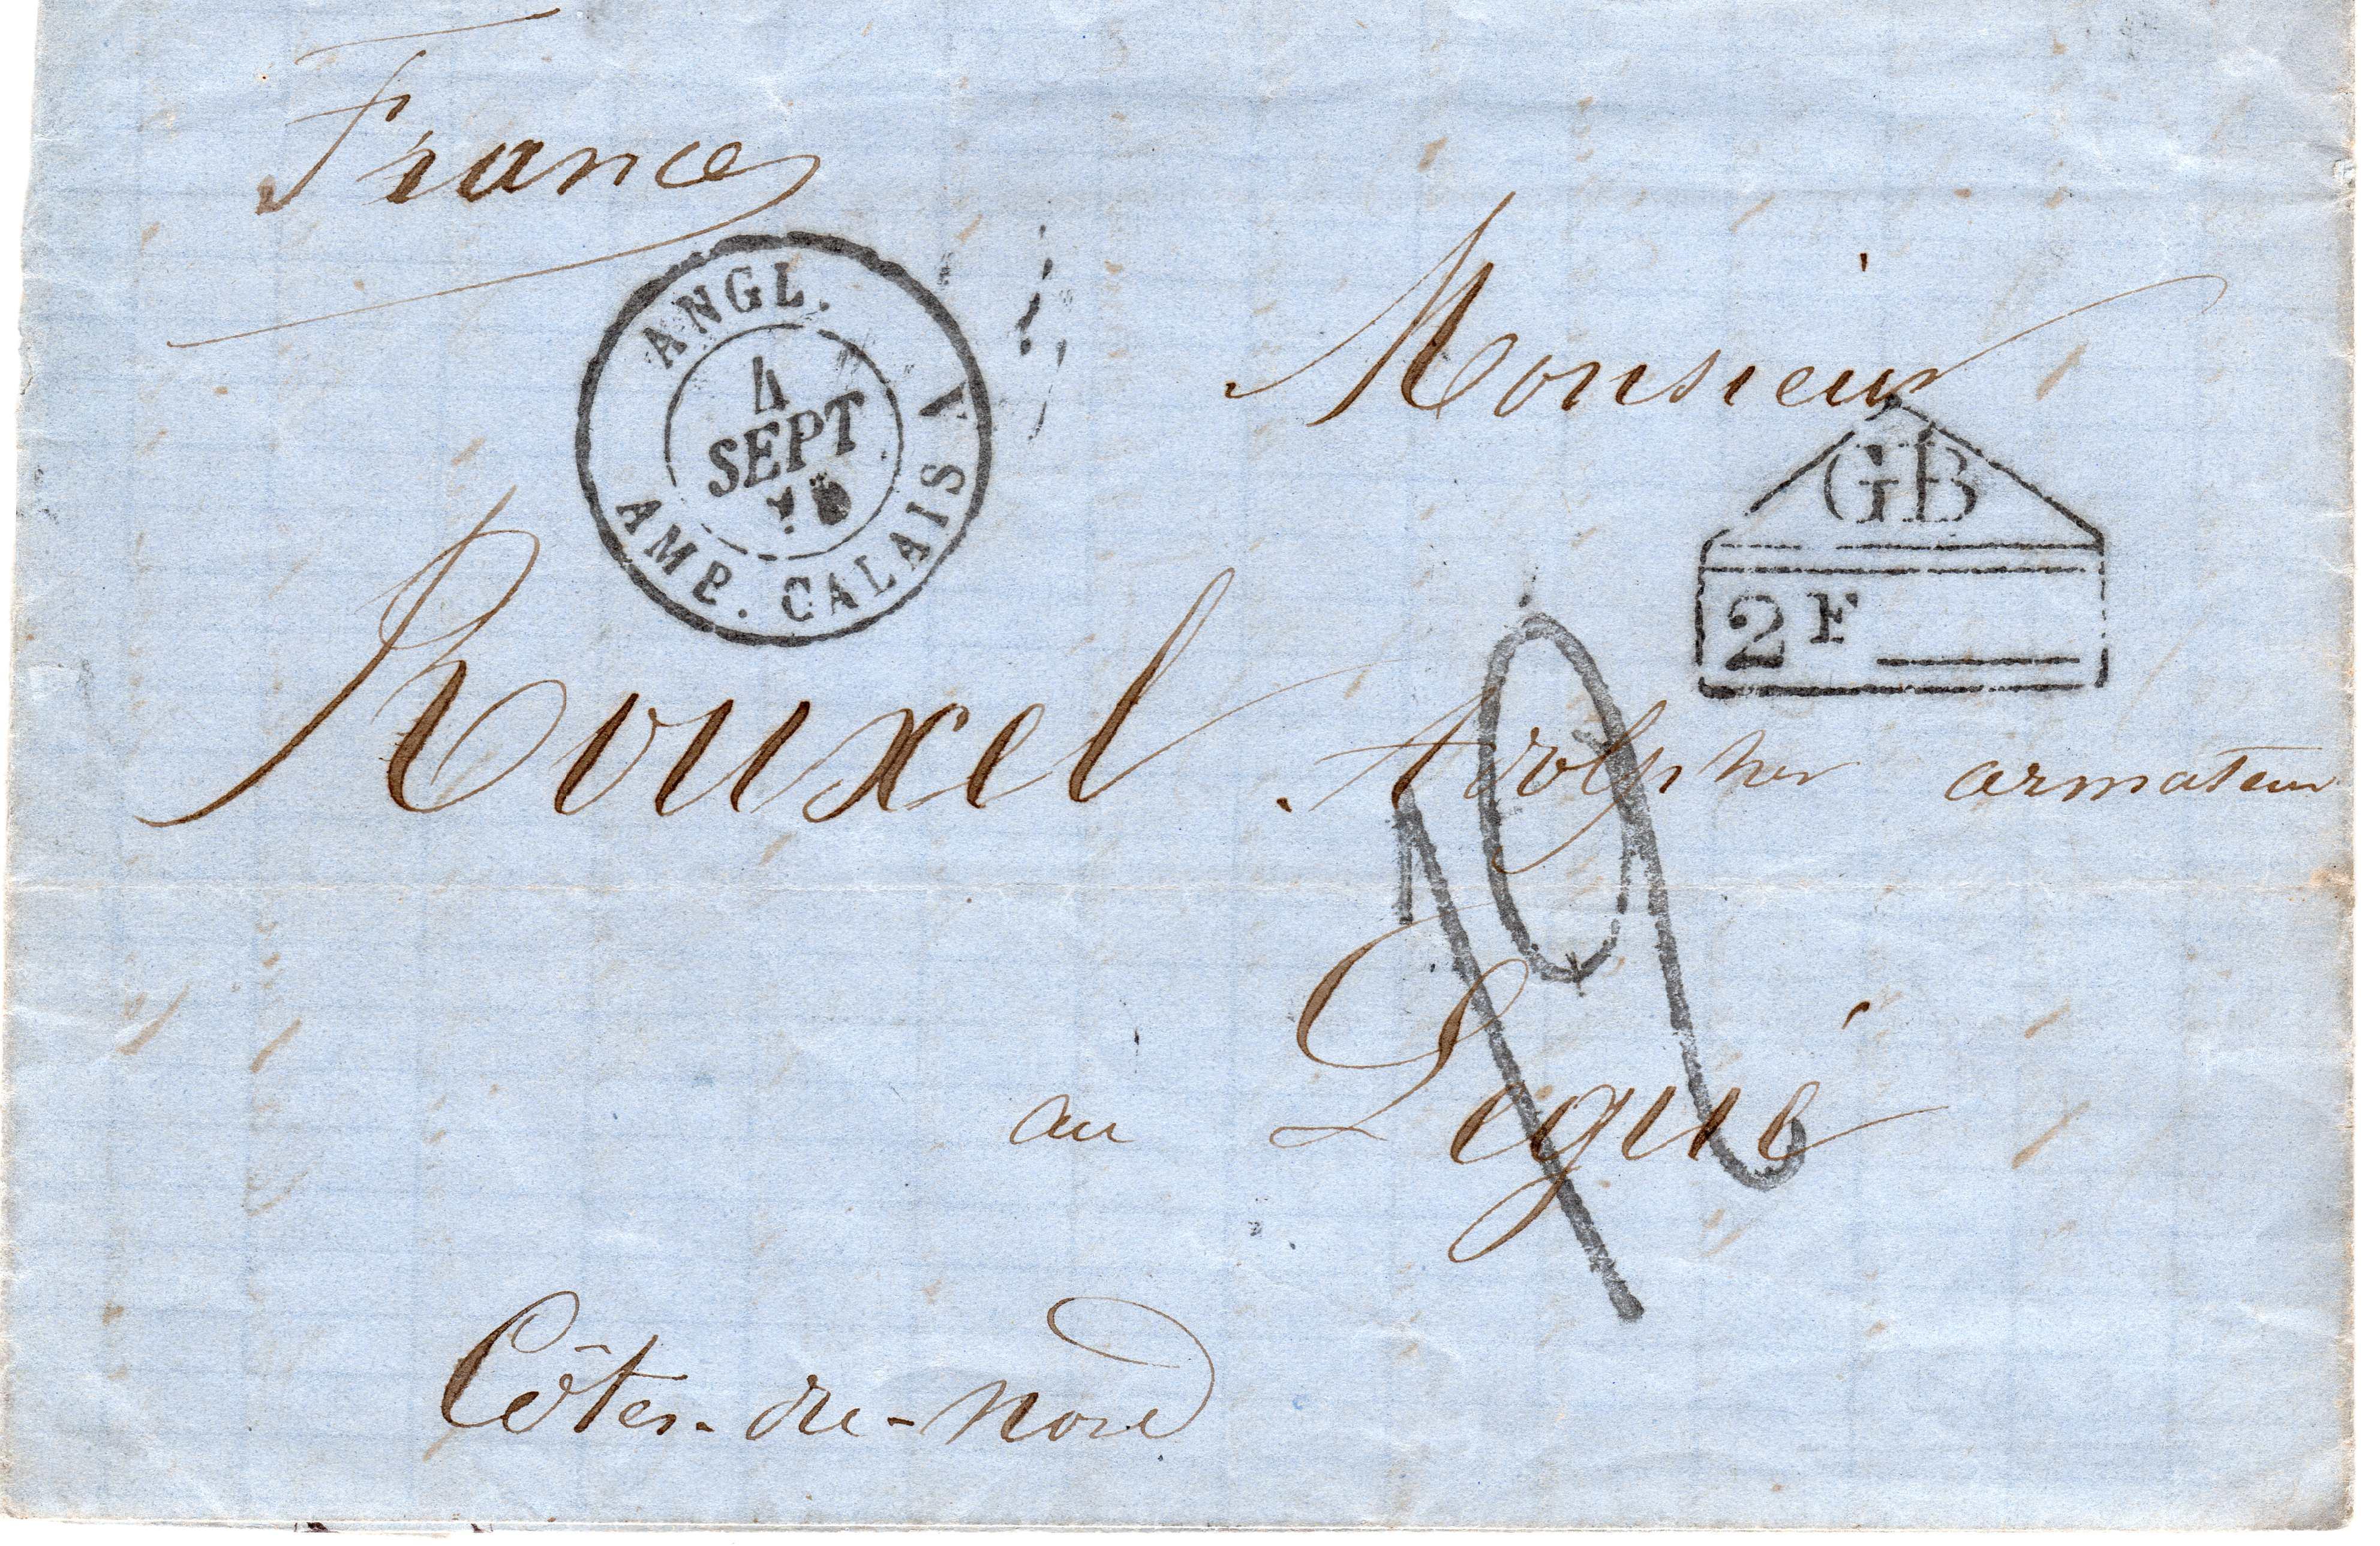 France
ANGL.
4
SEPT
AMB. CALAIS A
Monsieur
GB
2F
Rouxel Adolphe armateur
au Légué
Côtes-du-Nord